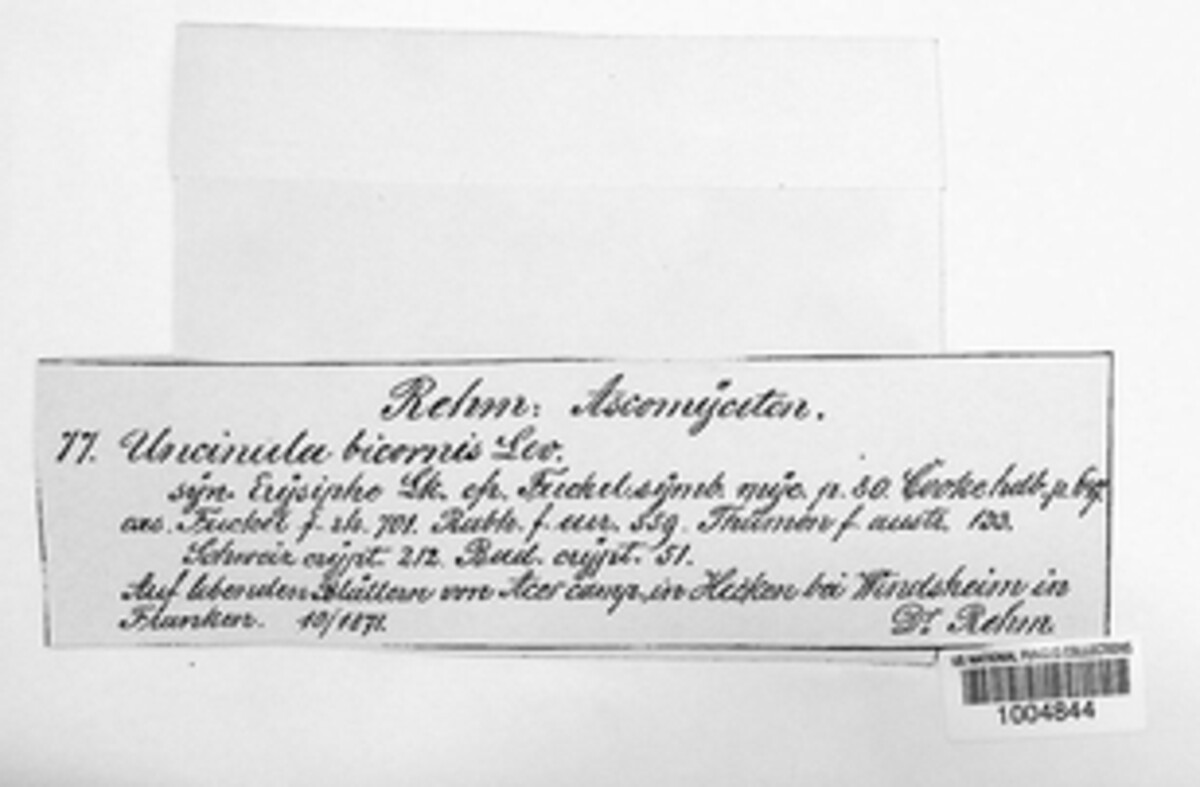 Rehm: Ascomÿceten.
77. Uncinula bicornis Lev.
sÿn. Erÿsiphe Lk. cfr. Fuckel sÿmb. mÿc. p. 80. Cooke hdb. p.
exs. Fuckel f. rh. 701. Rabh. f. eur. 559. Thümen f. austr. 133.
Schweiz crÿpt. 212. Bad. crÿpt. 51.
Auf lebenden Blättern von Acer camp. in Hecken bei Windsheim in
Franken. 10/1871. Dr. Rehm
US NATIONAL FUNGUS COLLECTIONS
1004844